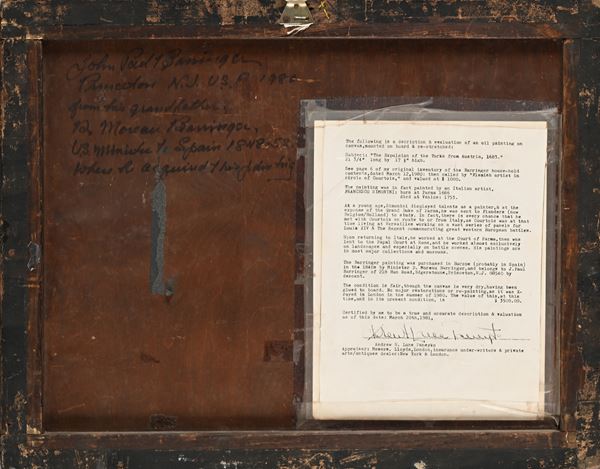 John Paul Barringer
Princeton N.J. U.S.A. 1980
from his grandfather,
D. Moreau Barringer,
U.S. Minister to Spain 1848-53
where he acquired this
The following is a decription & evaluation of an oil painting on
canvas,mounted on board & re-stretched:
Subject: "The Expulsion of the Turks from Austria, 1683."
21 3/4" long by 17 high.
See page 6 of my original inventory of the Barringer house-hold
contents,dated March 12,1980; then called by "Flemish artist in
circle of Courtois," and valued at $ 1000.
The painting was in fact painted by an Italian artist,
FRANCESCO SIMONINI: born at Parma 1686
died at Venice: 1753.
As a young age,Simonini displayed talents as a painter,& at the
expense of the Grand Duke of Parma,he was sent to Flanders (now
Belgium/Holland) to study. In fact,there is every chance that he
met with Courtois en route to or from Italy,as Courtois was at that
time living at Versailles working on a vast series of panels for
Louis XIV & The Regent commemorating great western European battles.
Upon returning to Italy,he worked at the Court of Parma,then was
lent to the Papal Court at Rome,and he worked almost exclusively
on landscapes and especially on battle scenes. His paintings are
in most major collections and museums.
The Barringer painting was purchased in Europe (probably in Spain)
in the 1840s by Minister D. Moreau Barringer,and belongs to J.Paul
Barringer of 229 Road,Edgerstoune,Princeton,N.J. 08540 by
descent.
The condition is fair,though the canvas is very dry,having been
glued to board. No major restorations or re-painting,as it was X-
rayed in London in the summer of 1980. The value of this,at this
time,and in its present condition, is $ 3500.00.
Certified by me to be a true and accurate description & valuation
as of this date: March 20th,1981,
Andrew N. Lane
Appraiser: Messrs. Lloyds,London,insurance under-writers & private
arts/antiques dealer:New York & London.